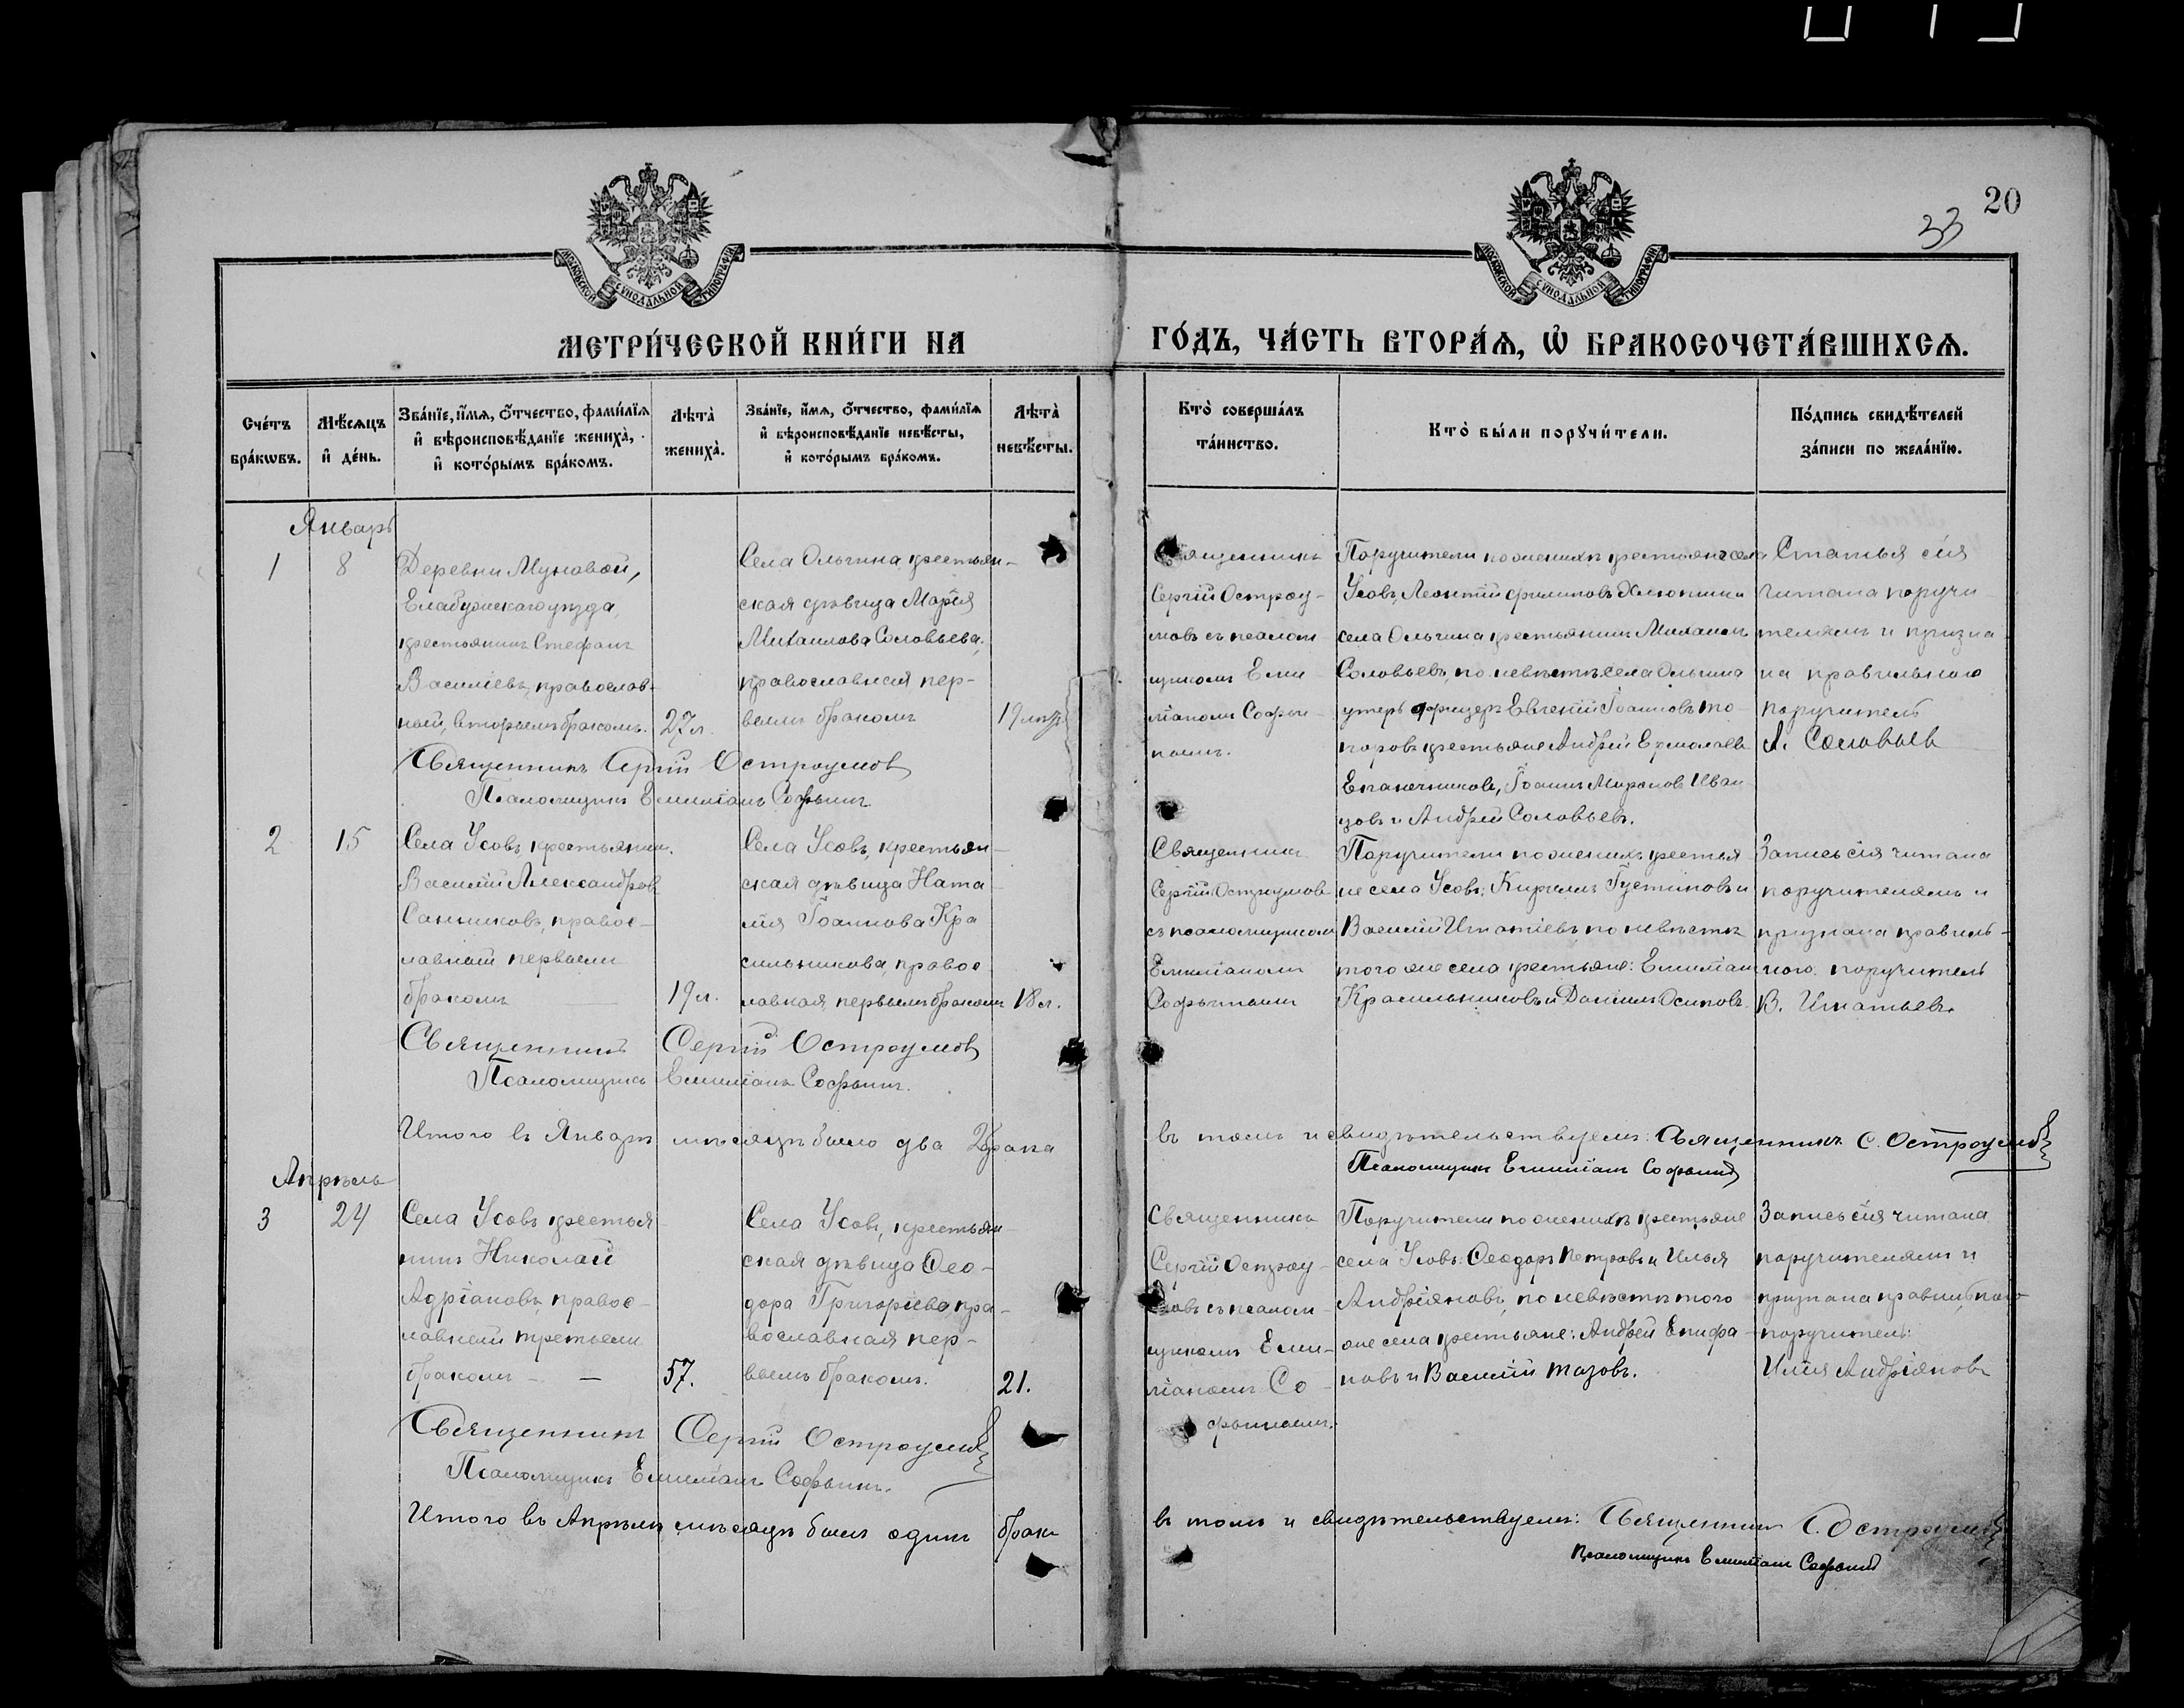 20
33
МОСКОВСКОЙ СѴНОДАЛЬНОЙ ТИПОГРАФІИ
МОСКОВСКОЙ СѴНОДАЛЬНОЙ ТИПОГРАФІИ
МЕТРИ́ЧЕСКОЙ КНИ́ГИ НА ГО́ДЪ, ЧА́СТЬ ВТОРА́Ѧ, Ѡ҆ БРАКОСОЧЕТА́ВШИХСѦ.
Сче́тъ бра́кѡвъ.
Мѣ́сѧцъ и҆ де́нь.
Зва́нїе, и҆́мѧ, ѻ҆́тчество, фами́лїѧ
и҆ вѣроисповѣ́данїе жениха̀,
и҆ кото́рымъ бра́комъ.
Лѣта̀ жениха̀.
Зва́нїе, и҆́мѧ, ѻ҆́тчество, фами́лїѧ
и҆ вѣроисповѣ́данїе невѣ́сты,
и҆ кото́рымъ бра́комъ.
Лѣта̀ невѣ́сты.
Кто̀ соверша́лъ
та́инство.
Кто̀ бы́ли порꙋчи́тели.
По́дпись свидѣ́телей
за́писи по жела́нїю.
Январь
1
8
Деревни Муновой,
Елабужскаго уезда,
крестьянинъ Стефанъ
Василіевъ, православ-
ный, вторымъ бракомъ.
27 л.
Села Ольгина крестьян-
ская дѣвица Марія
Михаилова Соловьева,
православная пер-
вымъ бракомъ
19 лѣтъ
Священникъ
Сергій Остроу-
мовъ съ псалом
щикомъ Еми
ліаномъ Софьи-
нымъ.
Поручители по женихѣ крестьяне села
Усовъ, Леонтій Филиповъ и
села Ольгина крестьянинъ Михаилъ
Соловьевъ, по невѣстѣ села Ольгина
унтеръ офицеръ Евгеній Іоанновъ То-
поровъ крестьяне Андрей Ермолаевъ
Епанечниковъ, Іоаннъ Мироновъ Иван
цовъ и Андрей Соловьевъ.
Статья сія
читана поручи
телямъ и призна
на правильною
поручитель
А. Соловьев
Священникъ Сергій Остроумовъ
Псаломщикъ Емиліанъ Софьинъ
2
15
Села Усовъ крестьянин.
Василій Александров
Санниковъ, правос-
лавный первымъ
бракомъ
19 л.
Села Усовъ, крестьян-
ская дѣвица Ната
лія Іоаннова Кра
сильникова, правос
лавная, первымъ бракомъ
18 л.
Священникъ
Сергій Остроумовъ
съ псаломщикомъ
Емиліаномъ
Софьинымъ
Поручители по женихѣ крестья
не села Усовъ: Кириллъ Густиновъ и
Василій Игнатіевъ, по невѣстѣ
того же села крестьяне: Емиліанъ
Красильниковъ и Даніилъ Осиповъ.
Запись сія читана
поручителямъ и
признана правиль-
ною. поручитель
В. Игнатьевъ.
Священникъ Сергій Остроумовъ
Псаломщикъ Емиліанъ Софьинъ.
Итого въ Январѣ мѣсяцѣ было два 2 брака въ томъ и свидѣтельствуемъ: Священникъ С. Остроумовъ
Псаломщикъ Емиліанъ Софьинъ
Апрѣль
3
24
Села Усовъ крестья-
нинъ Николай
Адріановъ, правос-
лавный третьимъ
бракомъ
57.
Села Усовъ, крестьян-
ская дѣвица Ѳео-
дора Григоріева, пра-
вославная пер-
вымъ бракомъ.
21.
Священникъ
Сергій Остроу-
мовъ съ псалом
щикомъ Еми-
ліаномъ Со-
фьинымъ.
Поручители по женихѣ крестьяне
села Усовъ: Ѳеодоръ Петровъ и Илья
Андріяновъ, по невѣстѣ того
же села крестьяне: Андрей Епифа-
новъ и Василій Тазовъ.
Запись сія читана
поручителямъ и
признана правильною
поручитель:
Илія Андріяновъ
Священникъ Сергій Остроумовъ
Псаломщикъ Емиліанъ Софьинъ.
Итого въ Апрѣлѣ мѣсяцѣ былъ одинъ бракъ въ томъ и свидѣтельствуемъ: Священникъ С. Остроумовъ
Псаломщикъ Емиліанъ Софьинъ